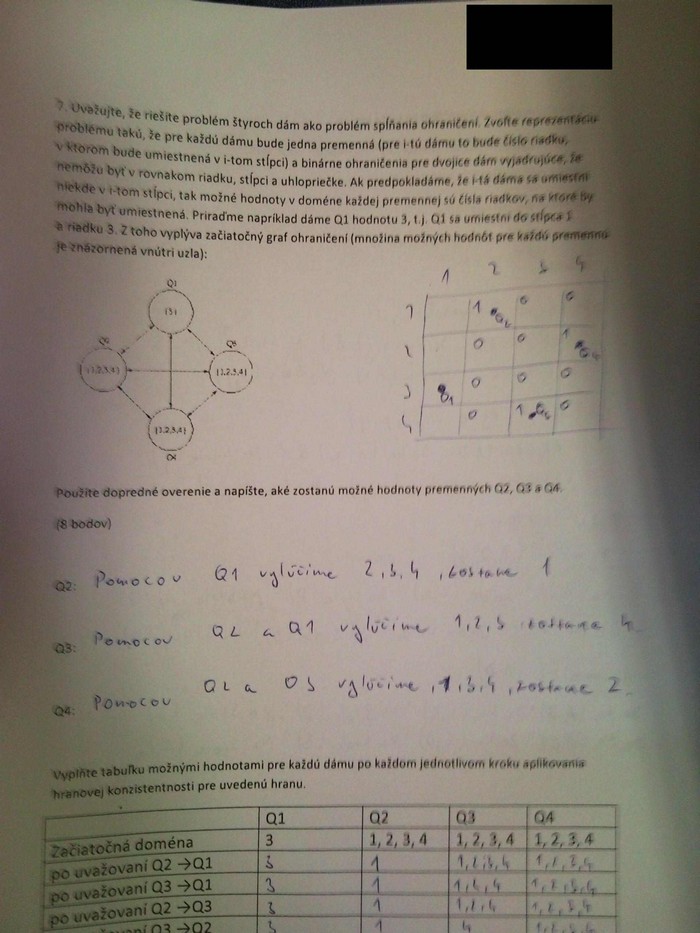 7. Uvažujte, že riešite problém štyroch dám ako problém spĺňania ohraničení. Zvoľte reprezentáciu
problému takú, že pre každú dámu bude jedna premenná (pre i-tú dámu to bude číslo riadku,
v ktorom bude umiestnená v i-tom stĺpci) a binárne ohraničenia pre dvojice dám vyjadrujúce, že
nemôžu byť v rovnakom riadku, stĺpci a uhlopriečke. Ak predpokladáme, že i-tá dáma sa umiestni
niekde v i-tom stĺpci, tak možné hodnoty v doméne každej premennej sú čísla riadkov, na ktoré by
mohla byť umiestnená. Priraďme napríklad dáme Q1 hodnotu 3, t.j. Q1 sa umiestni do stĺpca 1
a riadku 3. Z toho vyplýva začiatočný graf ohraničení (množina možných hodnôt pre každú premennú
je znázornená vnútri uzla):
1 2 3 4
Q1
{3}
1 1 0 0
Q2 Q3
2 0 0 1
{1,2,3,4} {1,2,3,4}
3 0 0 0
{1,2,3,4}
4 0 1 0
Q4
Použite dopredné overenie a napíšte, aké zostanú možné hodnoty premenných Q2, Q3 a Q4.
(8 bodov)
Q2: Pomocou Q1 vylúčime 2,3,4, zostane 1
Q3: Pomocou Q2 a Q1 vylúčime 1,2,3 zostane 4.
Q4: Pomocou Q2 a Q3 vylúčime, 1,3,4, zostane 2.
Vyplňte tabuľku možnými hodnotami pre každú dámu po každom jednotlivom kroku aplikovania
hranovej konzistentnosti pre uvedenú hranu.
Q1 Q2 Q3 Q4
Začiatočná doména 3 1, 2, 3, 4 1, 2, 3, 4 1, 2, 3, 4
po uvažovaní Q2 →Q1 3 1 1,2,3,4 1,2,3,4
po uvažovaní Q3 →Q1 3 1 1,2,4 1,2,3,4
po uvažovaní Q2 →Q3 3 1 1,2,4 1,2,3,4
po uvažovaní Q3 →Q2 3 1 4